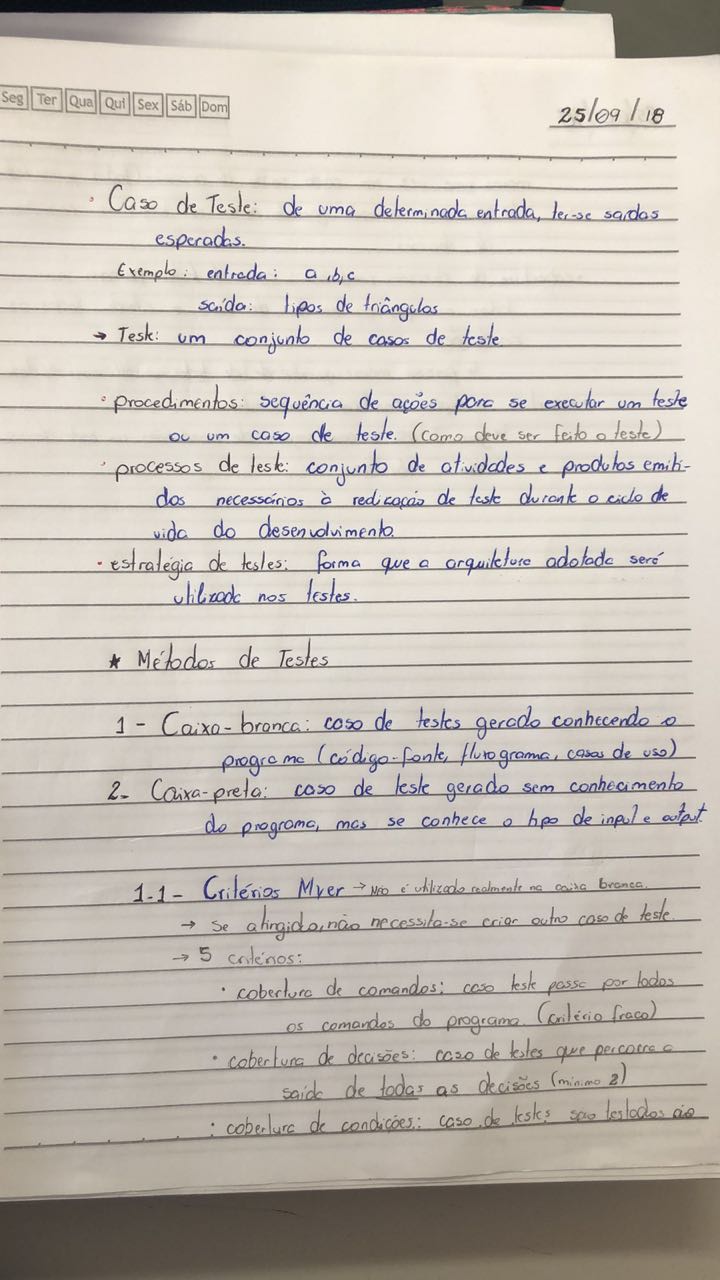 Seg Ter Qua Qui Sex Sáb Dom
25/09/18
• Caso de Teste: de uma determinada entrada, ter-se saídas
esperadas.
Exemplo: entrada: a,b,c
saída: tipos de triângulos
→ Teste: um conjunto de casos de teste
• procedimentos: sequência de ações para se executar um teste
ou um caso de teste. (como deve ser feito o teste)
• processos de teste: conjunto de atividades e produtos emiti-
dos necessários à redicação de teste durante o ciclo de
vida do desenvolvimento.
• estratégia de testes: forma que a arquitetura adotada será
utilizada nos testes.
* Métodos de Testes
1 - Caixa-branca: caso de testes gerado conhecendo o
programa (código-fonte, fluxograma, casos de uso)
2- Caixa-preta: caso de teste gerado sem conhecimento
do programa, mas se conhece o tipo de input e output.
1.1- Critérios Myer → Não é utilizado realmente na caixa branca.
→ se atingido, não necessita-se criar outro caso de teste.
→ 5 critérios:
• cobertura de comandos: caso teste passe por todos
os comandos do programa. (critério fraco)
• cobertura de decisões: caso de testes que percorra a
saída de todas as decisões (mínimo 2)
• cobertura de condições: caso de testes são testados ao